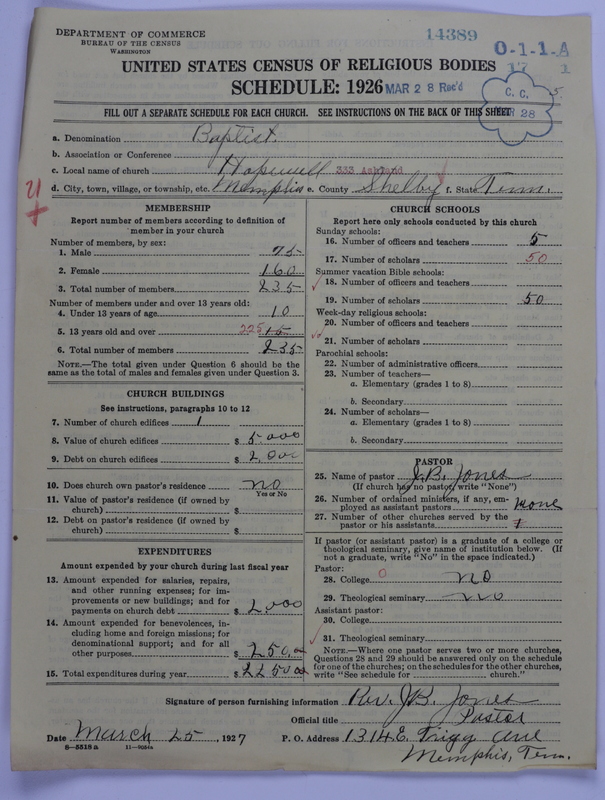 DEPARTMENT OF COMMERCE
BUREAU OF THE CENSUS
WASHINGTON
14389
0-1-1-A
17 1
UNITED STATES CENSUS OF RELIGIOUS BODIES
SCHEDULE: 1926
MAR 28 Rec'd
C. C.
MAR 28
FILL OUT A SEPARATE SCHEDULE FOR EACH CHURCH. SEE INSTRUCTIONS ON THE BACK OF THIS SHEET
a. Denomination Baptist.
b. Association or Conference
c. Local name of church Hopewell 333 Ashland
d. City, town, village, or township, etc. Memphis e. County Shelby f. State Tenn.
MEMBERSHIP
Report number of members according to definition of member in your church
Number of members, by sex:
1. Male 75
2. Female 160
3. Total number of members 235
Number of members under and over 13 years old:
4. Under 13 years of age 10
5. 13 years old and over 225 15
6. Total number of members 235
NOTE.—The total given under Question 6 should be the same as the total of males and females given under Question 3.
CHURCH BUILDINGS
See instructions, paragraphs 10 to 12
7. Number of church edifices 1
8. Value of church edifices $ 5000
9. Debt on church edifices $ 2000
10. Does church own pastor's residence no
Yes or No
11. Value of pastor's residence (if owned by church) $
12. Debt on pastor's residence (if owned by church) $
EXPENDITURES
Amount expended by your church during last fiscal year
13. Amount expended for salaries, repairs, and other running expenses; for improvements or new buildings; and for payments on church debt $ 2000
14. Amount expended for benevolences, including home and foreign missions; for denominational support; and for all other purposes $ 250.00
15. Total expenditures during year $ 2250.00
CHURCH SCHOOLS
Report here only schools conducted by this church
Sunday schools:
16. Number of officers and teachers 5
17. Number of scholars 50
Summer vacation Bible schools:
18. Number of officers and teachers
19. Number of scholars 50
Week-day religious schools:
20. Number of officers and teachers
21. Number of scholars
Parochial schools:
22. Number of administrative officers
23. Number of teachers—
a. Elementary (grades 1 to 8)
b. Secondary
24. Number of scholars—
a. Elementary (grades 1 to 8)
b. Secondary
PASTOR
25. Name of pastor J.B. Jones
(If church has no pastor, write "None")
26. Number of ordained ministers, if any, employed as assistant pastors none
27. Number of other churches served by the pastor or his assistants 1
If pastor (or assistant pastor) is a graduate of a college or theological seminary, give name of institution below. (If not a graduate, write "No" in the space indicated.)
Pastor:
28. College 0 no
29. Theological seminary no
Assistant pastor:
30. College
31. Theological seminary
NOTE.—Where one pastor serves two or more churches, Questions 28 and 29 should be answered only on the schedule for one of the churches; on the schedules for the other churches, write "See schedule for church."
Signature of person furnishing information Rev. J.B. Jones
Official title Pastor
Date March 25, 1927 P. O. Address 1314 E. Trigg Ave
Memphis, Tenn.
8-5518a 11-9084a